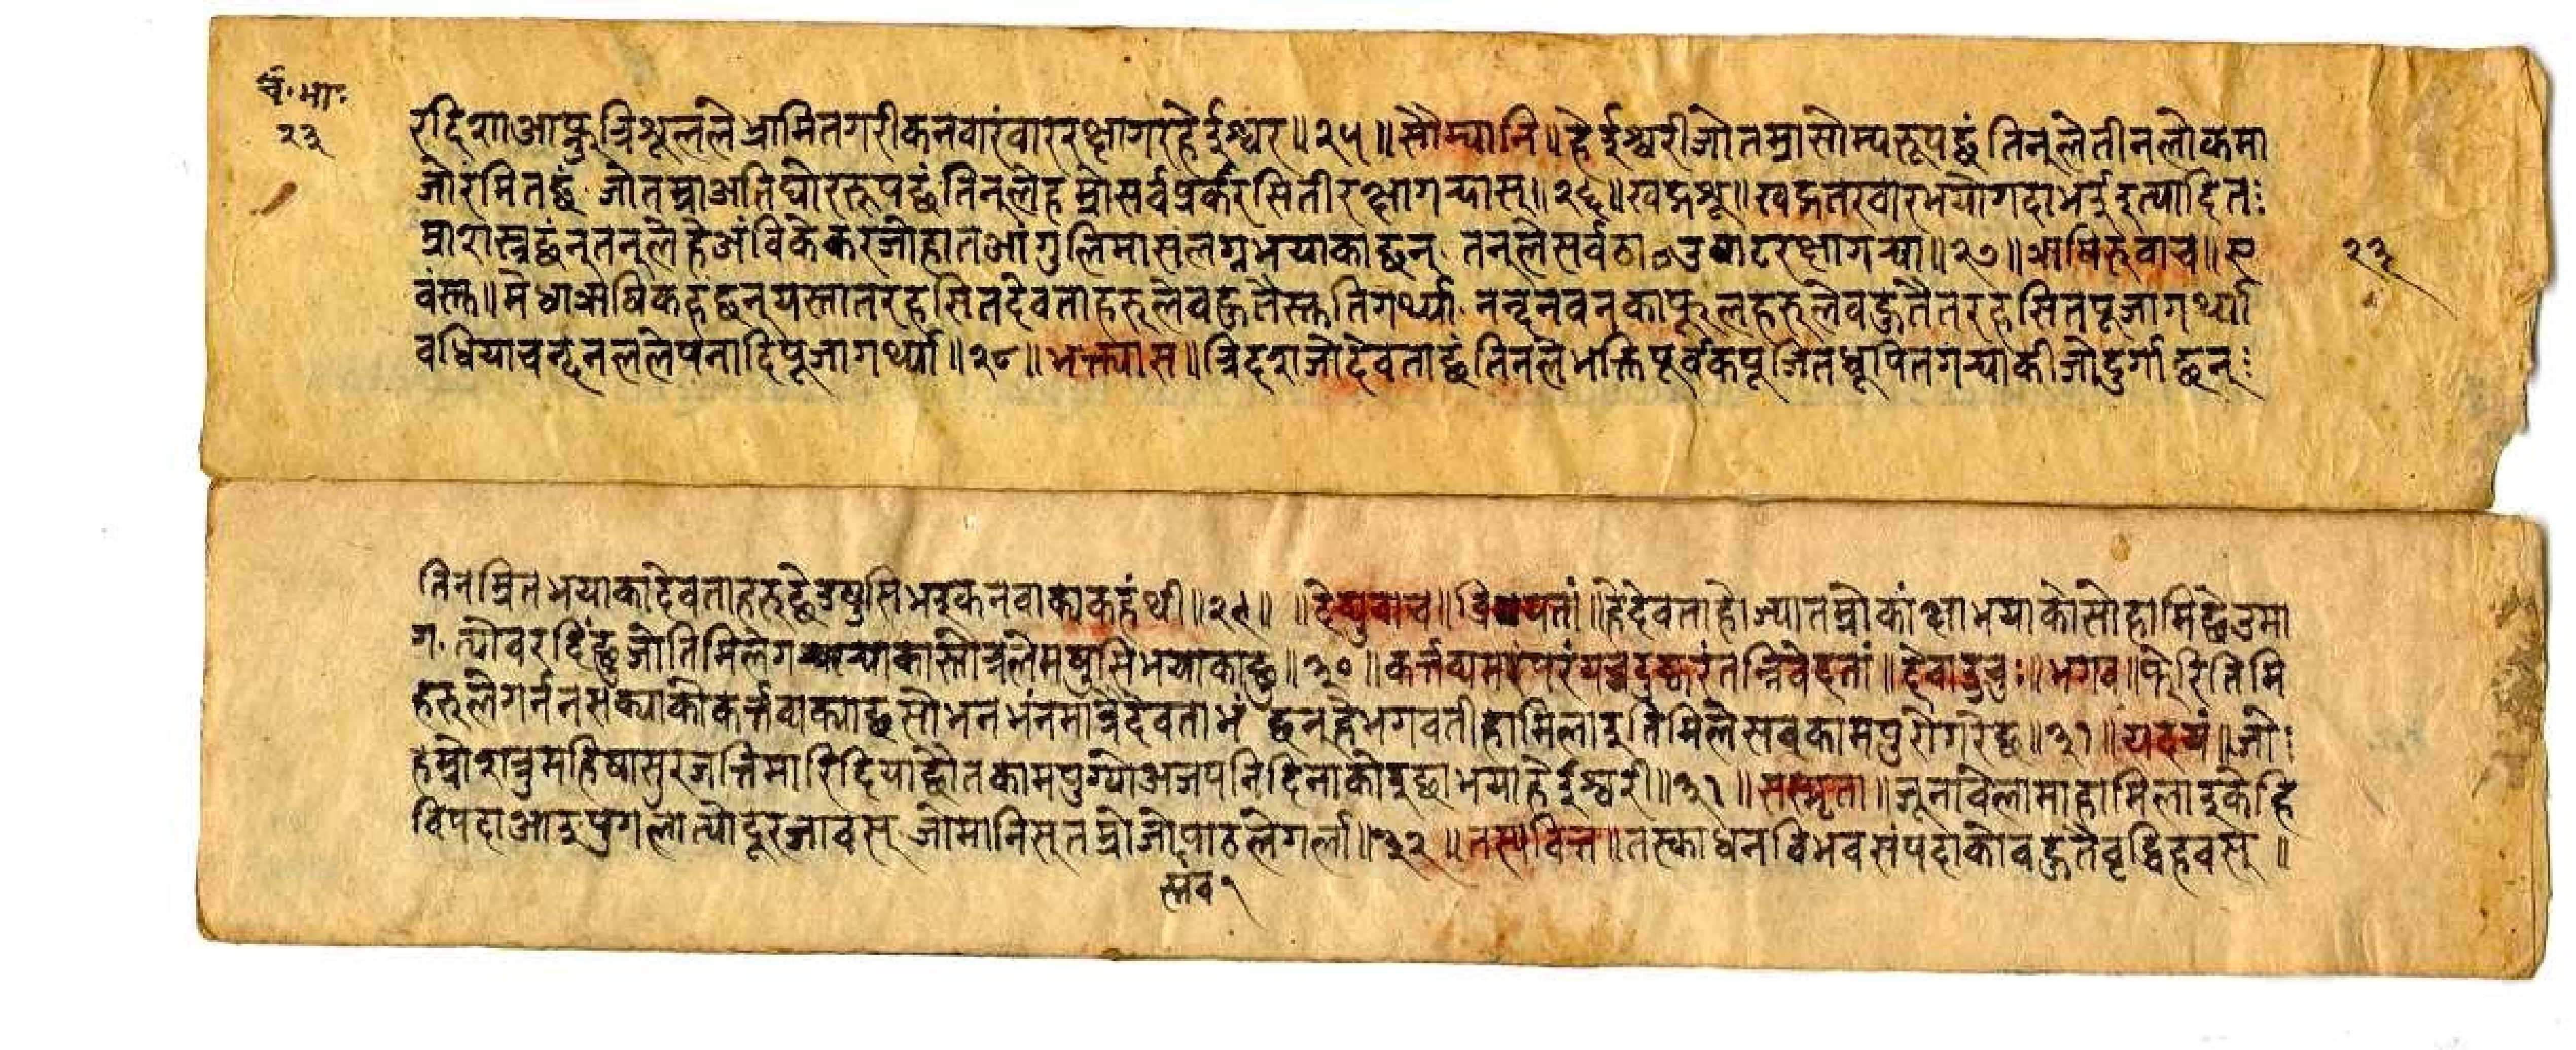 चं.भा.
२३
रदिशाआफ्नुत्रिशूललेभ्रामितगरीकनवारंवाररक्षागरहेईश्वर॥२५॥सौम्यानि॥हेईश्वरीजोतम्रासौम्यरूपछंतिनुलेतीनलोकमा
जोरंमितछं जोतम्राअतिघोररूपछंतिनुलेहम्रोसर्वप्रकरसितीरक्षागर्‍यास्॥२६॥खड्गशू॥खड्गतरवारभयोगदाभईइत्यादित
म्राशस्त्रछंन्तनुलेहेअंविकेकरजोहातआंगुलिमासलग्नभयाकाछन् तनुलेसर्वठाउवाटरक्षागर्‍या॥२७॥ऋषिरुवाच॥ए
वंस्तु॥मेधाऋषिकहछन्यस्तातरहसितदेवताहरुलेवहुतैस्तुतिगर्थ्या नन्दनवनकाफूलहरुलेवहुतैतरहसितपूजागर्थ्या
वढियाचन्दनललेपनादिपूजागर्थ्या॥२८॥भक्त्यास॥त्रिदशजोदेवताछंतिनलेभक्तिपूर्वकपूजितधूपितगर्‍याकीजोदुर्गाछन्
२३
तिनम्रितभयाकादेवताहरुछेउषुसिभइकनवाक्यकहंथी॥२९॥ ॥देव्युवाच॥व्रियतां॥हेदेवताहोज्यातम्रोकांक्षाभयाकोसोहामिछेउमा
ग त्योवरदिंछुजोतिमिलेगर्‍याकास्तोत्रलेमषुसिभयाकाछु॥३०॥कर्त्तव्यमपरंयच्चदुष्करंतन्निवेदतां॥देवाउचुः॥भगव॥फेरितिमि
हरुलेगर्ननसक्याकोकर्त्तव्यक्याछसोभनभंनमात्रैदेवताभंछन्हेभगवतीहामिलाइतिमिलेसवकामपुरोगरेछ॥३१॥यदयं॥जो
हम्रोशत्रुमहिषासुरजत्तिमारिदियाछौतकामपुग्योअजपनिदिनाकोइछाभयाहेईश्वरी॥३१॥सस्मृता॥जूनवेलामाहामिलाइकेहि
विपदाआइपुगलात्योदूरजावस् जोमानिसतम्रोजोपाठलेगर्ला॥३२॥तस्यवित्त॥तस्काधनविभवसंपदाकोवहुतैवृद्धिहवस्॥
स्तव१